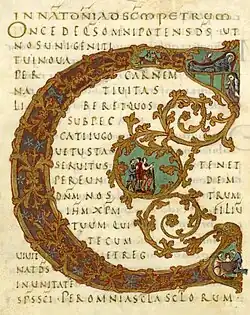 IN NAT DNI AD SCM PETRUM
CONCEDE QS OMNIPOTENS DS UT
NOS UNIGENITI
TUI NOUA
PER CARNEM
NATIUITAS
LIBERET QUOS
SUB PEC
CATI IUGO
UETUSTA
SERUITUS TENET
PER EUNDEM
DNM NOSTRUM
IHM XPM FILIU
TUUM QUI
TECUM
UIUIT ET REG
NAT DS
IN UNITATE
SPS SCI PER OMNIA SCLA SCLORUM